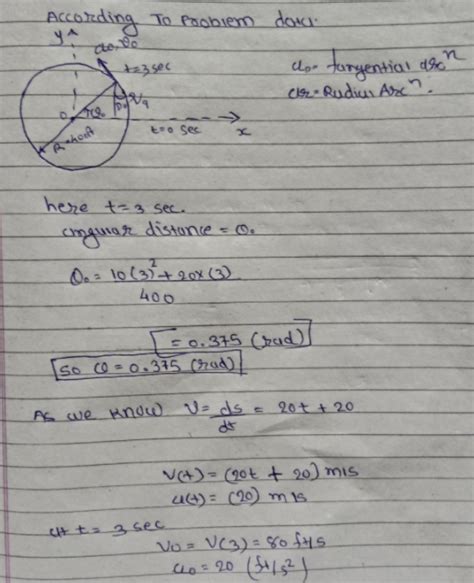 According To Problem
y
a₀, v₀
t=3 sec
a₀ = tangential Accⁿ
ar = Radius Accⁿ.
O
t=0 sec
x
here t=3 sec.
angular distance = θ₀
θ₀ = 10(3)² + 20×(3)
400
= 0.375 (rad)
so θ = 0.375 (rad)
As we know V = ds/dt = 20t + 20
V(t) = (20t + 20) m/s
a(t) = (20) m/s
at t = 3 sec
V₀ = V(3) = 80 ft/s
a₀ = 20 (ft/s²)